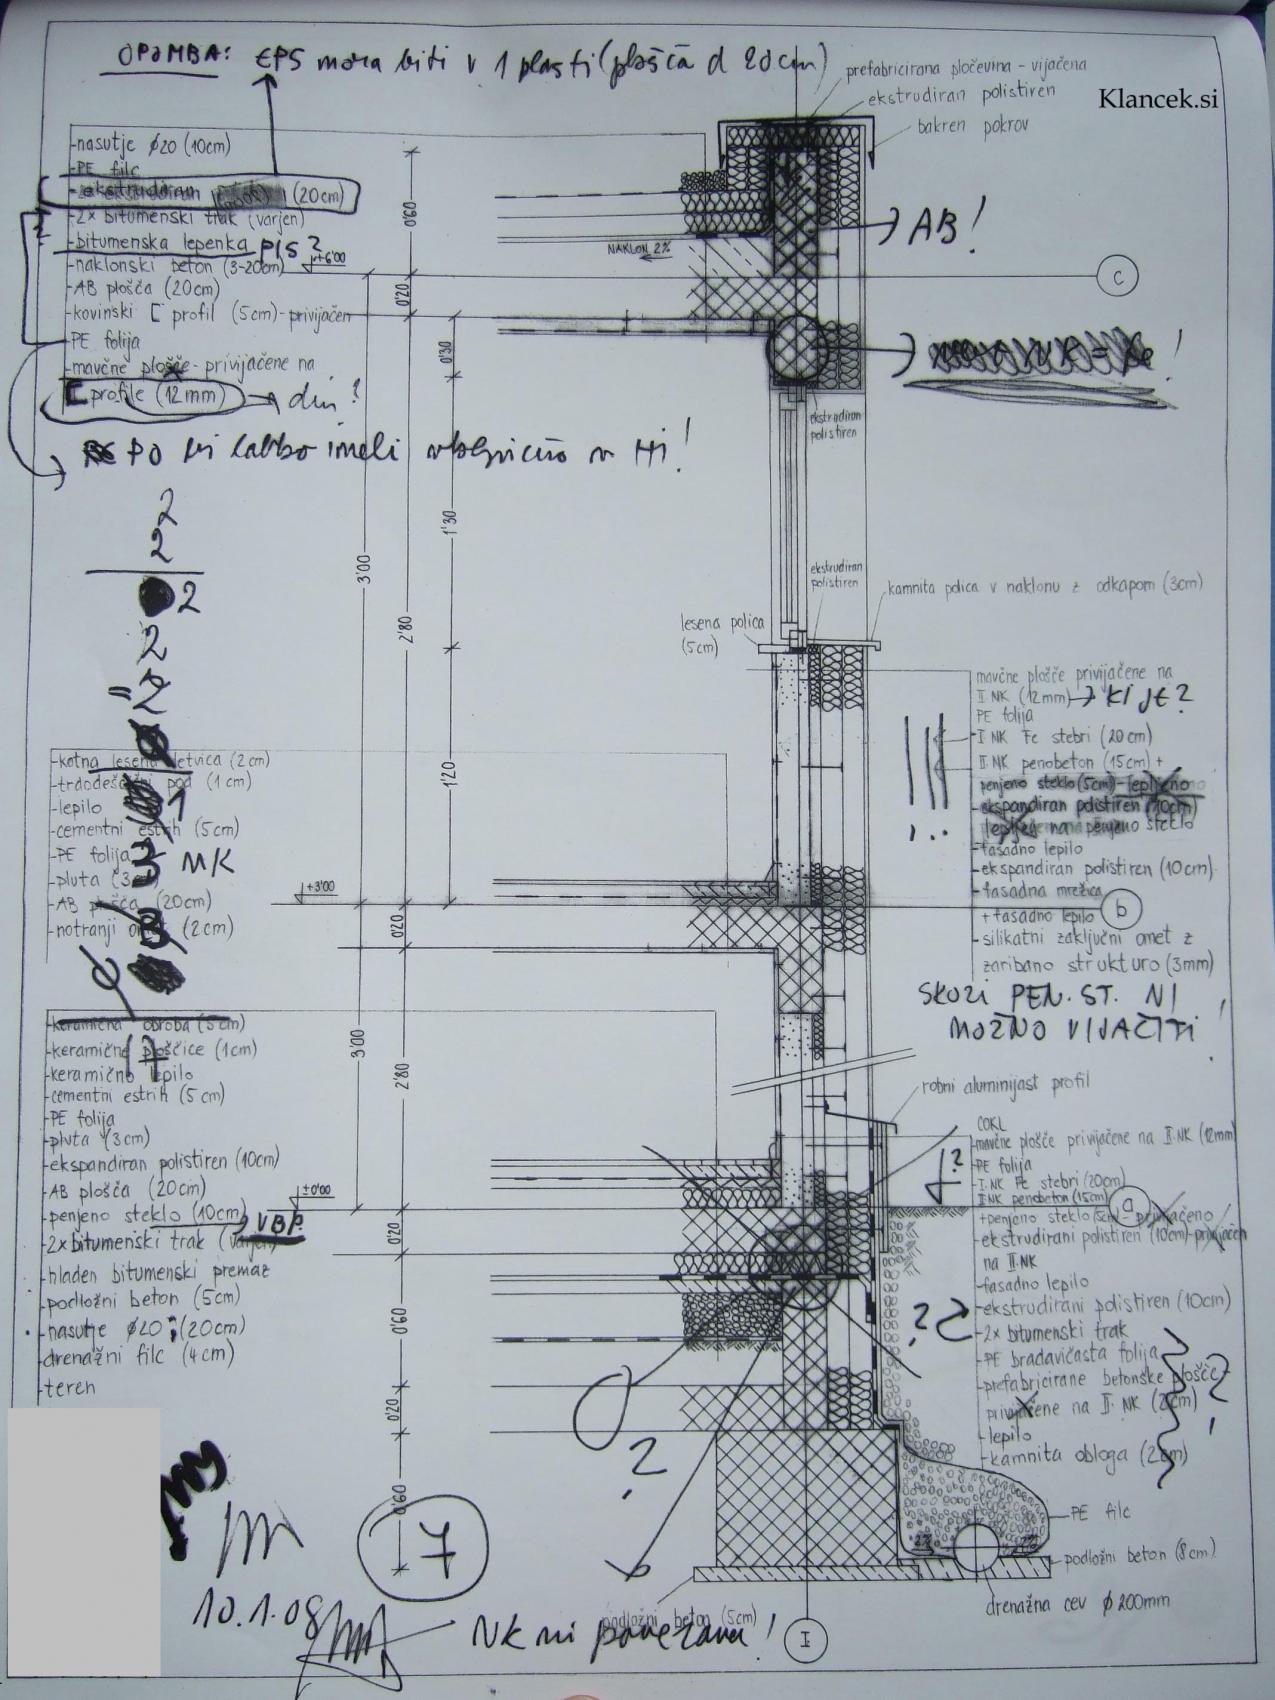 OPOMBA: EPS mora biti v 1 plasti (plošča d 20cm)
prefabricirana pločevina - vijačena
ekstrudiran polistiren
Klancek.si
bakren pokrov
-nasutje ϕ20 (10cm)
-PE filc
-ekstrudiran (20cm)
-2x bitumenski trak (varjen)
-bitumenska lepenka PIS?
-naklonski beton (3-20cm)
-AB plošča (20cm)
-kovinski [ profil (5cm)-privijačen
-PE folija
-mavčne plošče-privijačene na
[ profile (12mm) → dim?
PO bi lahko imeli v Hi!
+6'00
NAKLON 2%
0'60
0'20
0'30
1'30
3'00
2'80
1'20
AB!
C
ekstrudiran
polistiren
ekstrudiran
polistiren
kamnita polica v naklonu z odkapom (3cm)
lesena polica
(5cm)
2
2
2
2
2
1
NK
17
-kotna lesena letvica (2cm)
-trdodeščični pod (1cm)
-lepilo
-cementni estrih (5cm)
-PE folija
-pluta (3cm)
-AB plošča (20cm)
-notranji omet (2cm)
+3'00
0'20
3'00
2'80
mavčne plošče privijačene na
II.NK (12mm) → KI JE?
PE folija
-I NK Fe stebri (20cm)
-II.NK penobeton (15cm) +
penjeno steklo (5cm)-lepljeno
-ekspandiran polistiren (10cm)
lepljen na penjeno steklo
-fasadno lepilo
-ekspandiran polistiren (10cm)
-fasadna mrežica
+fasadno lepilo
b
-silikatni zaključni omet z
zaribano strukturo (3mm)
SKOZI PEN.ST. NI
MOŽNO VIJAČITI!
-keramična obroba (5cm)
-keramične ploščice (1cm)
-keramično lepilo
-cementni estrih (5cm)
-PE folija
-pluta (3cm)
-ekspandiran polistiren (10cm)
-AB plošča (20cm)
-penjeno steklo (10cm)
VBP?
-2x bitumenski trak (varjen)
-hladen bitumenski premaz
-podložni beton (5cm)
-nasutje ϕ20 (20cm)
-drenažni filc (4cm)
-teren
±0'00
0'20
0'60
0'20
0'60
robni aluminijast profil
COKL
-mavčne plošče privijačene na II.NK (12mm)
-PE folija
?
-I.NK Fe stebri (20cm)
II.NK penobeton (15cm)
a
+penjeno steklo (5cm) - privijačeno
-ekstrudirani polistiren (10cm)-privijačen
na II.NK
-fasadno lepilo
-ekstrudirani polistiren (10cm)
?
-2x bitumenski trak
-PE bradavičasta folija
-prefabricirane betonske plošče-
privijačene na II.NK (2cm)
?!
-lepilo
-kamnita obloga (2cm)
?
PE filc
podložni beton (8cm)
drenažna cev ϕ 200mm
7
10.1.08
podložni beton (5cm)
NK ni povezana!
I